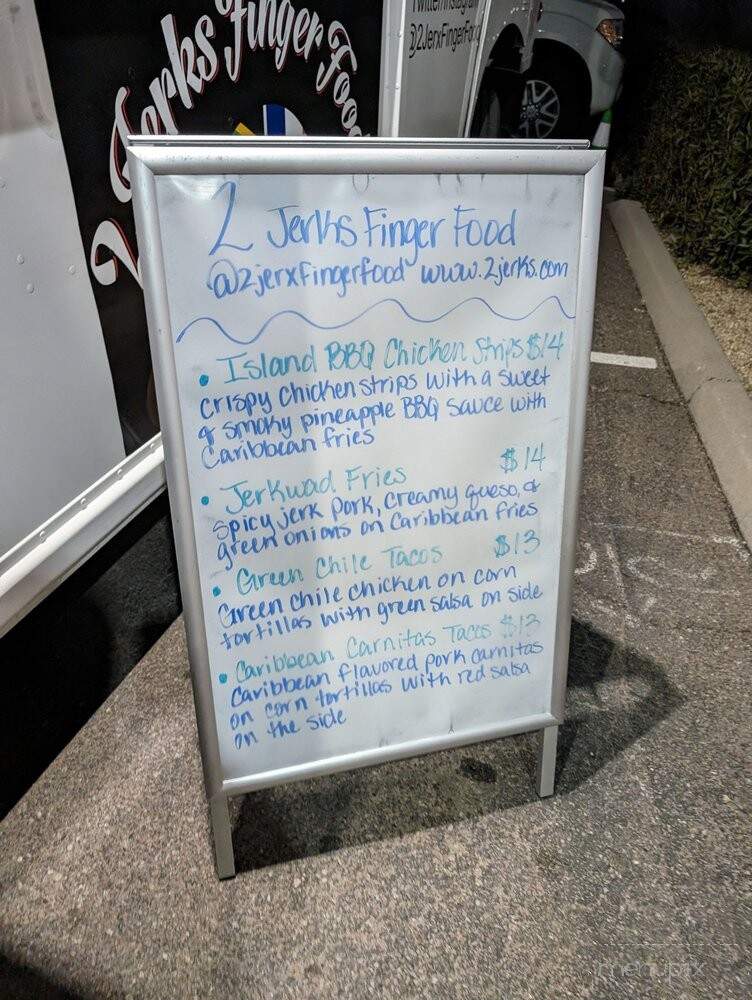 Jerks Finger Food
Twitter/Instagram
@2JerxFingerFood
2 Jerks Finger Food
@2jerxfingerfood www.2jerks.com
• Island BBQ Chicken Strips $14
crispy chicken strips with a sweet
& smoky pineapple BBQ sauce with
Caribbean fries
• Jerkwad Fries $14
spicy jerk pork, creamy queso, &
green onions on Caribbean fries
• Green Chile Tacos $13
Green chile chicken on corn
tortillas with green salsa on side
• Caribbean Carnitas Tacos $13
Caribbean flavored pork carnitas
on corn tortillas with red salsa
on the side
menupix